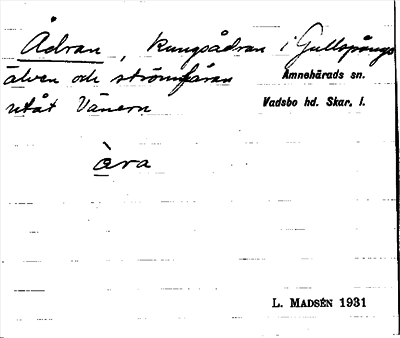 Ådran, Kungsådran i Gullspångs
älven och strömfåran
utåt Vänern
Amnehärads sn.
Vadsbo hd. Skar. l.
ὰra
L. MADSÉN 1931